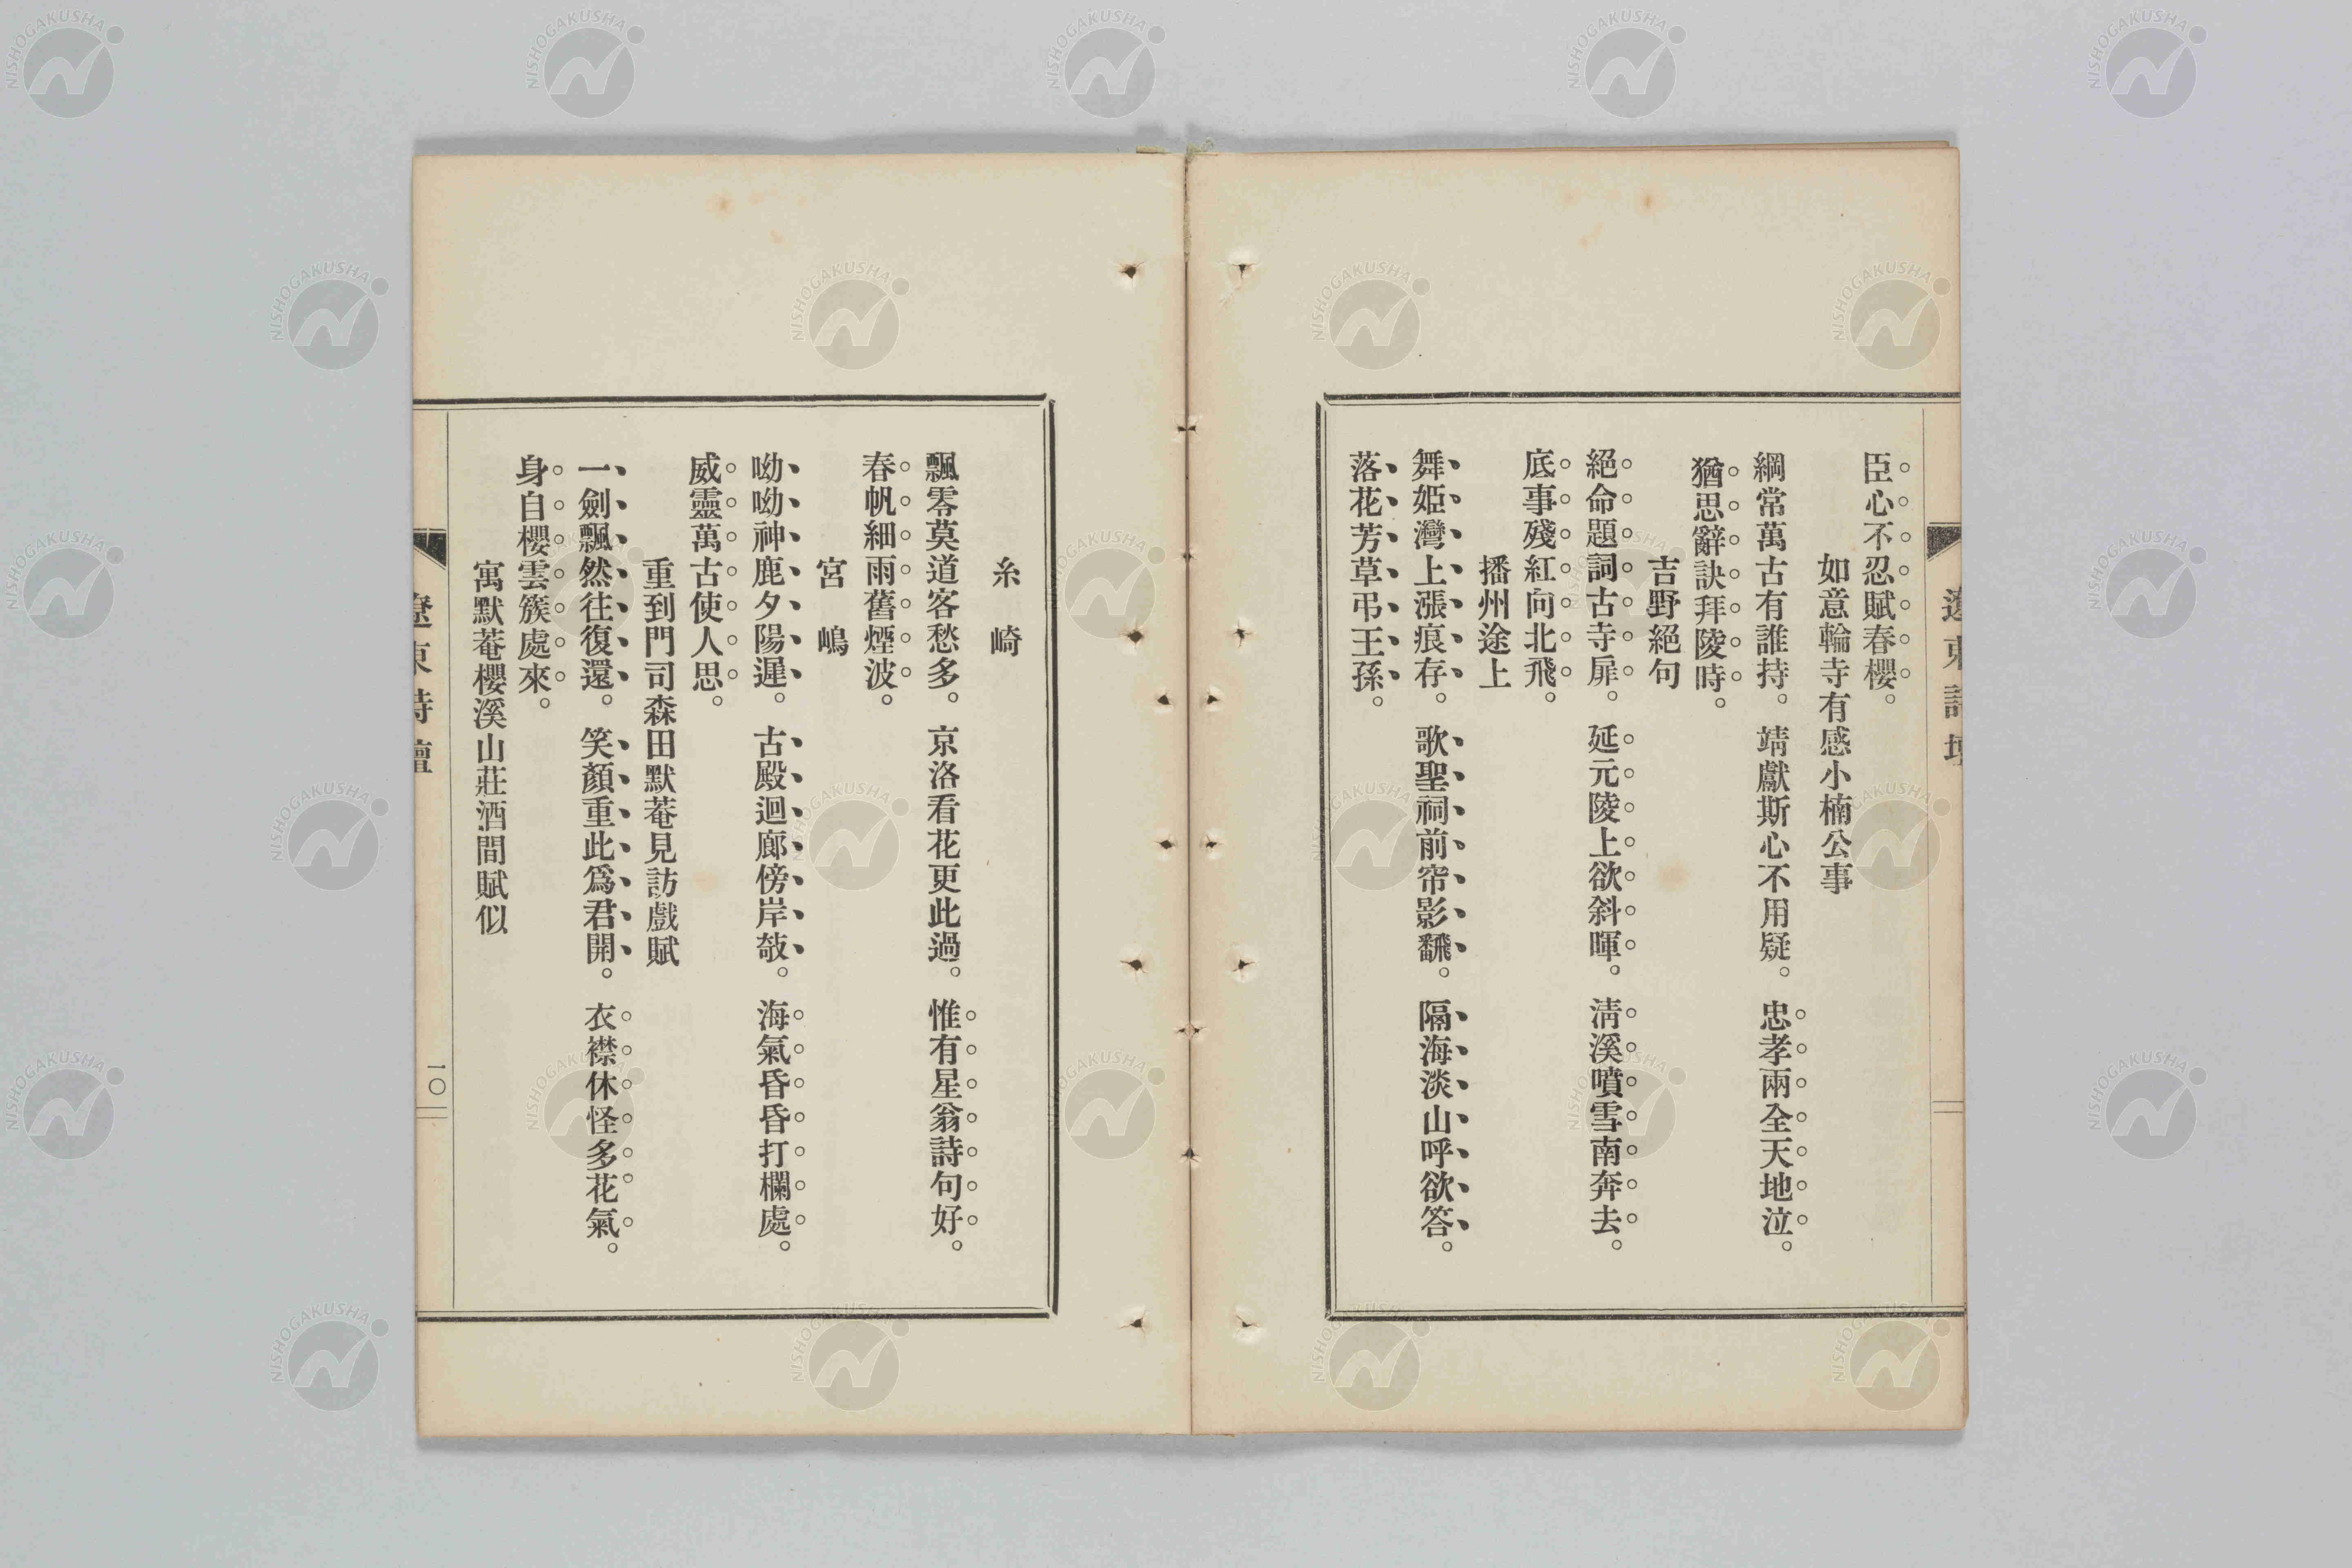 臣心不忍賦春櫻。
如意輪寺有感小楠公事
綱常萬古有誰持。靖獻斯心不用疑。忠孝兩全天地泣。
猶思辭訣拜陵時。
吉野絕句
絕命題詞古寺扉。延元陵上欲斜暉。淸溪噴雪南奔去。
底事殘紅向北飛。
播州途上
舞姬灣上漲痕存。歌聖祠前帘影飜。隔海淡山呼欲答。
落花芳草弔王孫。
糸崎
飄零莫道客愁多。京洛看花更此過。惟有星翁詩句好。
春帆細雨舊煙波。
宮嶋
呦呦神鹿夕陽遲。古殿迴廊傍岸攲。海氣昏昏打欄處。
威靈萬古使人思。
重到門司森田默菴見訪戲賦
一劍飄然往復還。笑顏重此爲君開。衣襟休怪多花氣。
身自櫻雲簇處來。
寓默菴櫻溪山莊酒間賦似
遼東詩壇
一〇
NISHOGAKUSHA